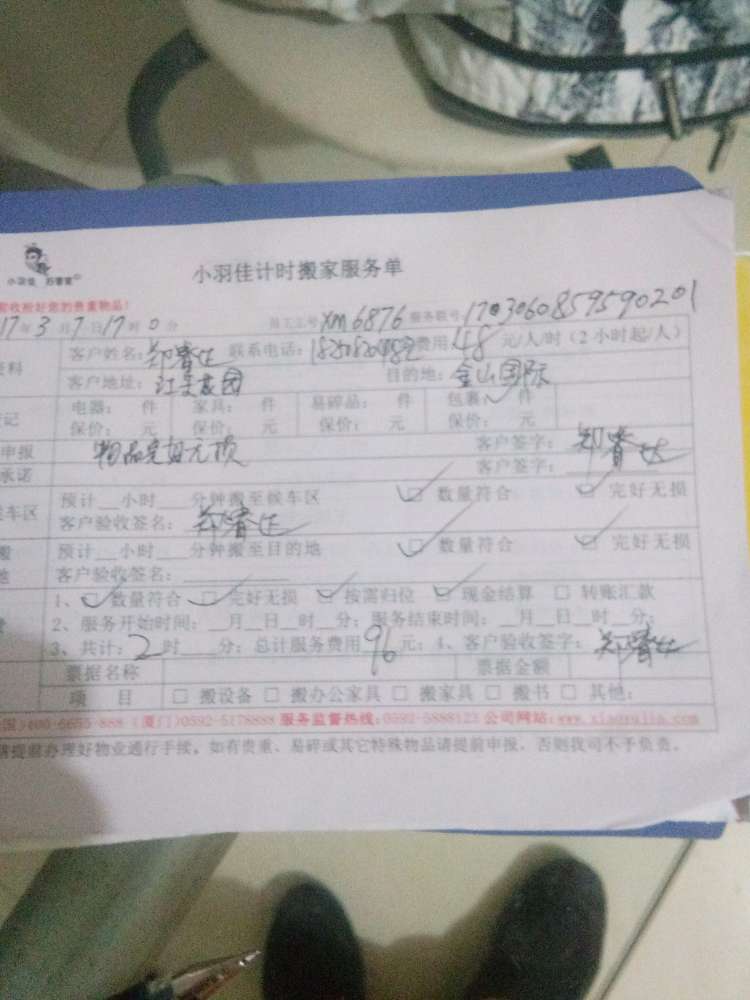 小羽佳
小羽佳计时搬家服务单
收所好您的贵重物品!
17年3月7日17时0分 员工工号XM6876 服务联号:1703060859590201
客户姓名:郑 联系电话: 费用:48元/人/时(2小时起/人)
客户地址: 目的地:金山国际
电器: 件 家具: 件 易碎品: 件 包裹: 件
保价: 元 保价: 元 保价: 元 保价: 元
申报 物品完好无损 客户签字:郑
承诺 客户签字:
车区 预计__小时___分钟搬至候车区 数量符合 完好无损
客户验收签名:郑
预计__小时___分钟搬至目的地 数量符合 完好无损
地 客户验收签名:
1、数量符合 完好无损 按需归位 现金结算 □ 转账汇款
2、服务开始时间:__月__日__时__分;服务结束时间:__月__日__时__分;
3、共计:2时___分;总计服务费用96元;4、客户验收签字:郑
票据名称 票据金额
项 目 □ 搬设备 □ 搬办公家具 □ 搬家具 □ 搬书 □ 其他:
国)400-6655-888 (厦门)0592-5178888 服务监督热线:0592-5888123 公司网站:www.xiaoyujia.com
提前办理好物业通行手续。如有贵重、易碎或其它特殊物品请提前申报,否则我司不予负责。